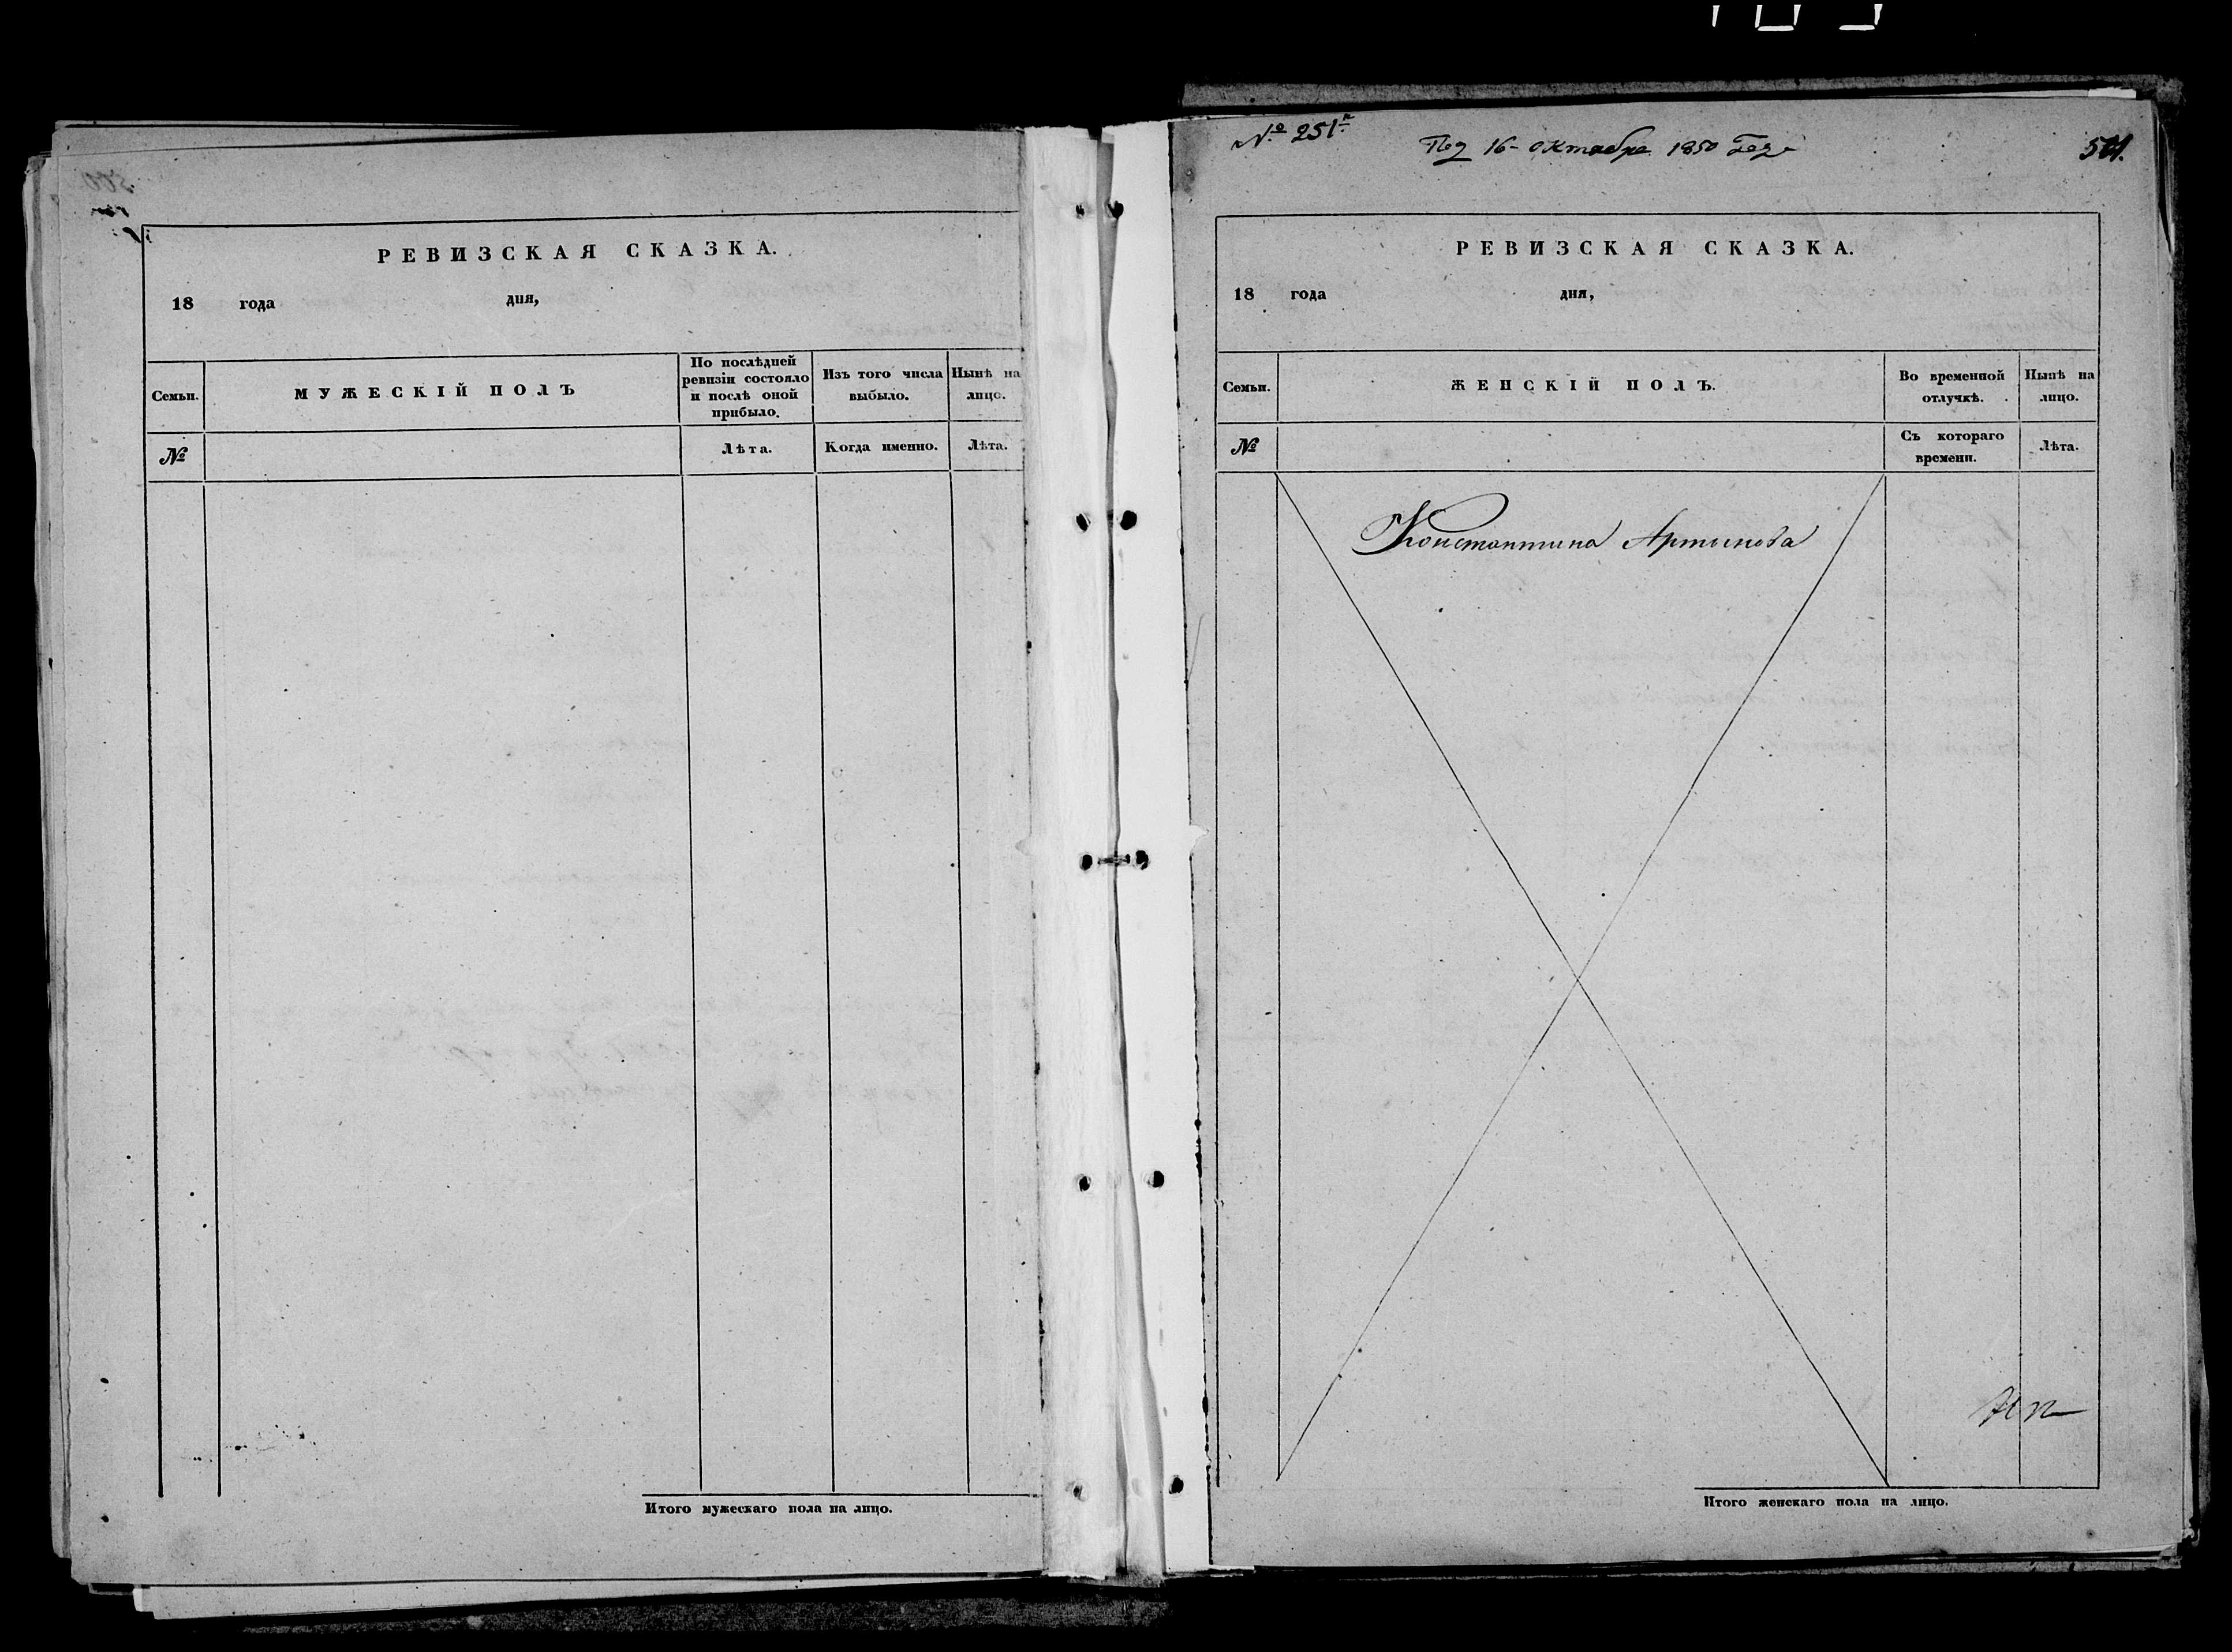 РЕВИЗСКАЯ СКАЗКА.
18 года дня,
Семьи.
МУЖЕСКІЙ ПОЛЪ
По послѣдней
ревизіи состояло
и послѣ оной
прибыло.
Изъ того числа
выбыло.
Нынѣ на
лицо.
№
Лѣта.
Когда именно.
Лѣта.
Итого мужескаго пола на лицо.
№ 251
16 Октября 1850 Года
501.
РЕВИЗСКАЯ СКАЗКА.
18 года дня,
Семьи.
ЖЕНСКІЙ ПОЛЪ.
Во временной
отлучкѣ.
Нынѣ на
лицо.
№
Съ котораго
времени.
Лѣта.
Константина Артынова
Итого женскаго пола на лицо.